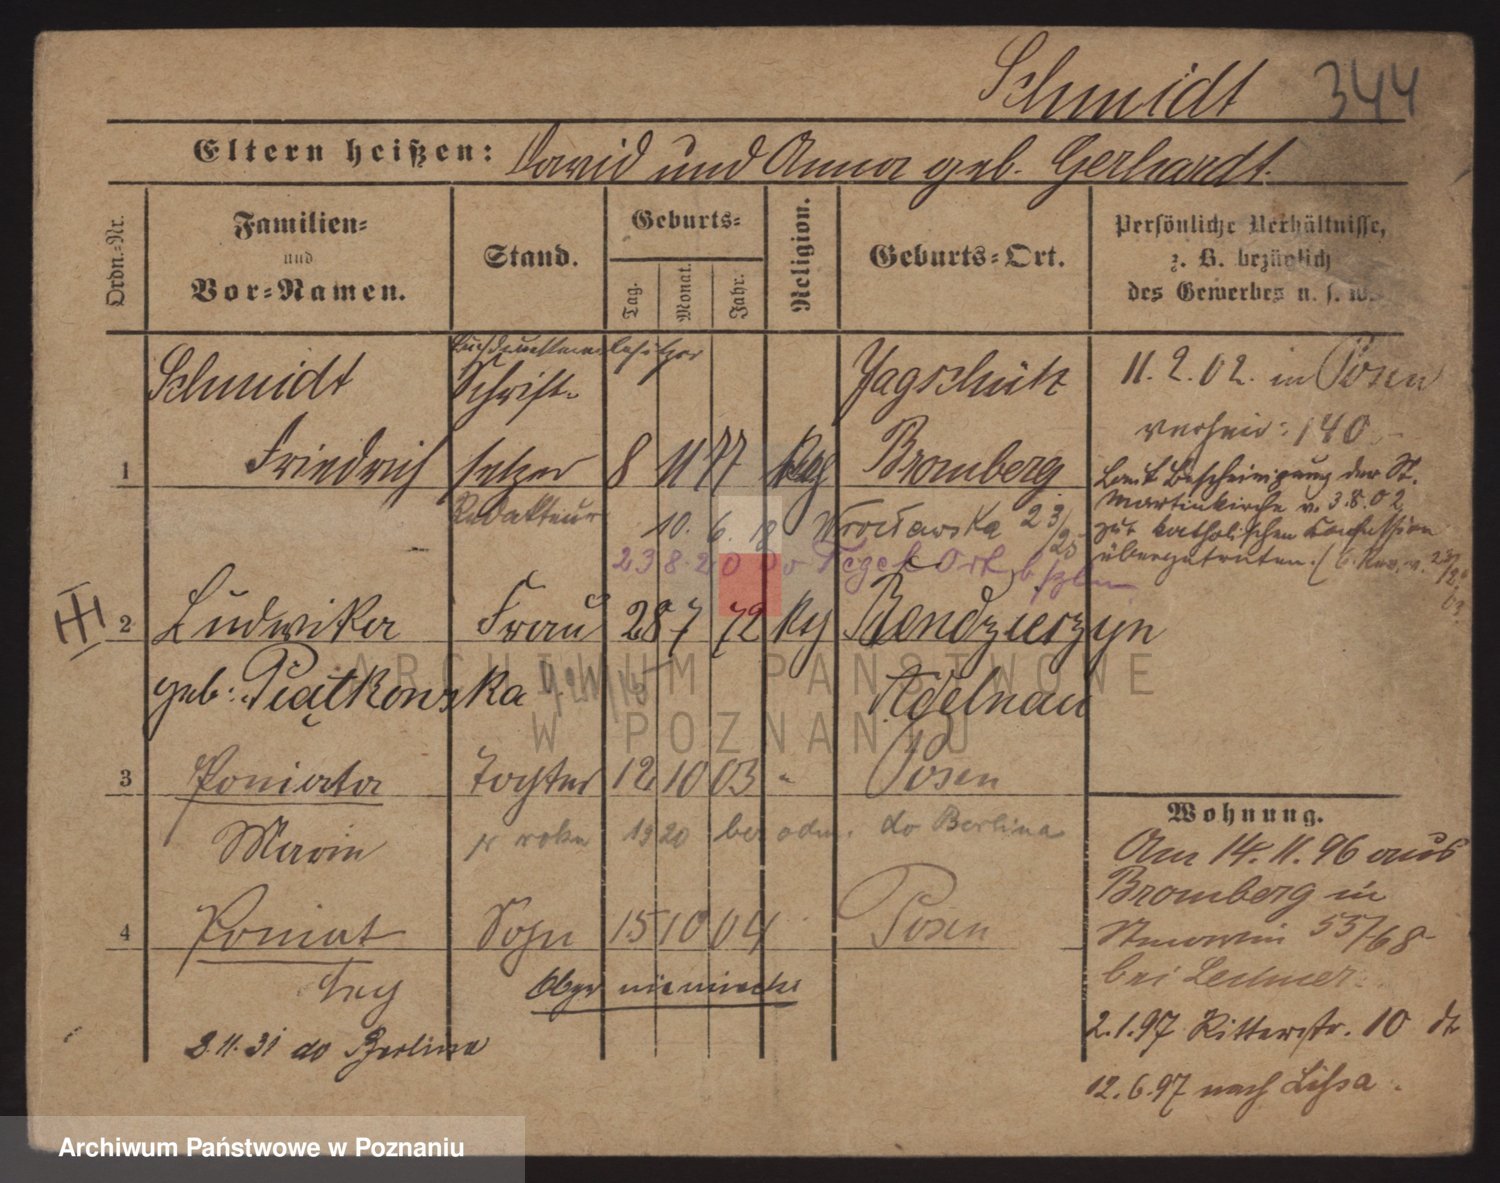 Schmidt 344
Eltern heißen: David und Anna geb. Gerhardt.
Ordn.-Nr.
Familien-
und
Vor-Namen.
Stand.
Geburts-
Tag.
Monat.
Jahr.
Religion.
Geburts-Ort.
Persönliche Verhältnisse,
z. B. bezüglich
des Gewerbes u. s. w.
Buchdruckereibesitzer
Schmidt Schrift- Jagschütz
1 Friedrich setzer 8 11 77 Bromberg
Redakteur 10. 6. 18 Wrocławska 23/25
23 8. 20 Tegel Ort b/
2 Ludwika Frau 28 7 72 Bendzieszyn
geb: Piątkowska Adelnau
3 Poniata Tochter 12 10 03 " Posen
Marie w roku 1920 do Berlina
4 Poniat Sohn 15 10 04 Posen
Obyw niemieckie
2.11.31 do Berlina
11. 2. 02. in Posen
verheir: 140
Laut Bescheinigung der St.
Martinkirche v. 3.8.02
zur katholischen Confession
übergetreten.
Wohnung.
Am 14. 11. 96 aus
Bromberg in
55/68
bei
2.1.97 Ritterstr. 10
12.6.97 nach Lissa.
ARCHIWUM PAŃSTWOWE
W POZNANIU
Archiwum Państwowe w Poznaniu